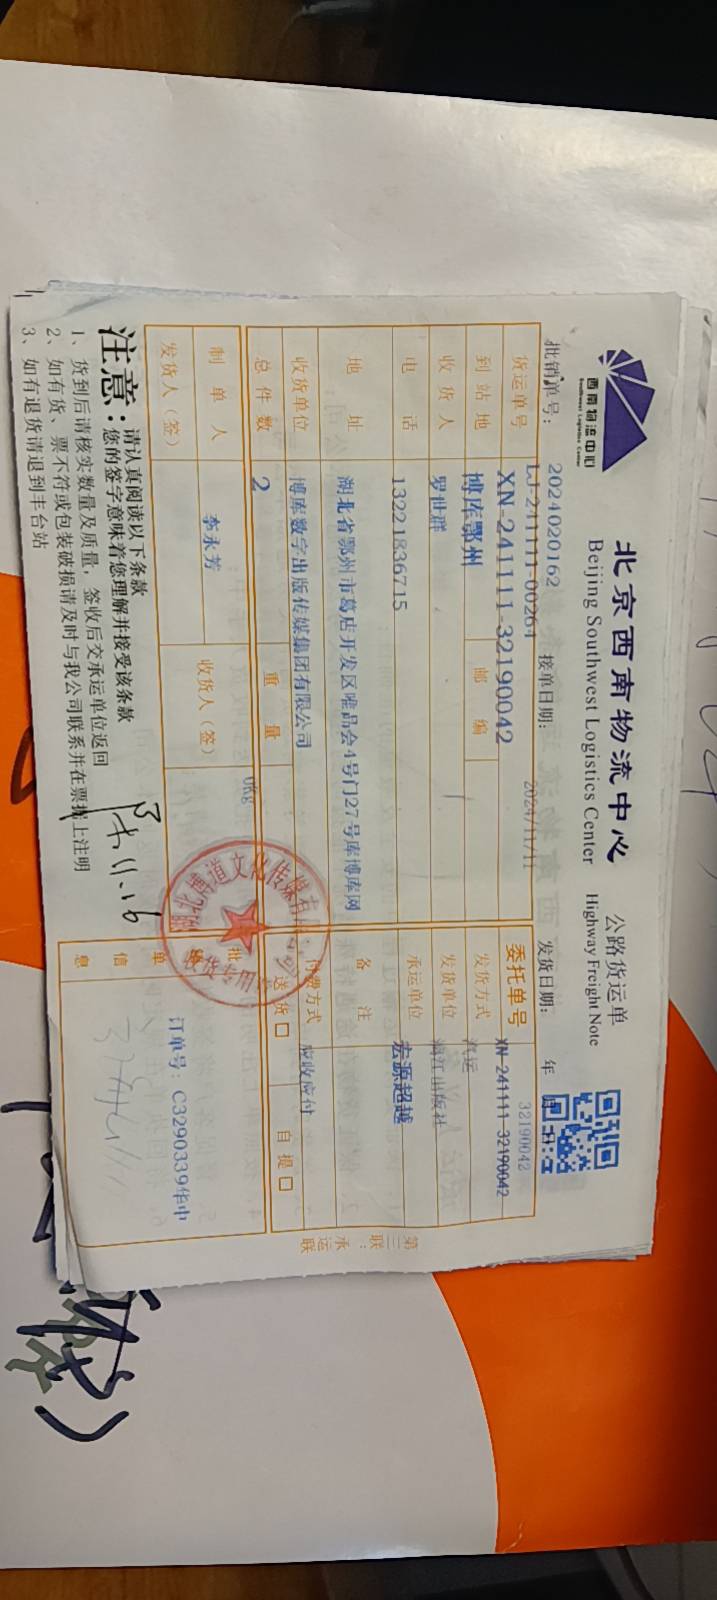 西南物流中心
Southwest Logistics Center
北京西南物流中心 公路货运单
Beijing Southwest Logistics Center Highway Freight Note
批销单号: 2024020162 接单日期: 2024/11/11 发货日期: 年 月 日
32190042
LJ-241111-00264
货运单号 XN-241111-32190042 委托单号 XN-241111-32190042
到站地 博库鄂州 邮编 发货方式 汽运
收货人 罗世群 发货单位 漓江出版社
电话 13221836715 承运单位 宏源超越
地址 湖北省鄂州市葛店开发区唯品会4号门27号库博库网 备注
收货单位 博库数字出版传媒集团有限公司 付费方式 应收应付
总件数 2 重量 0Kg 送货 □ 自提 □
制单人 李永芳 收货人(签) 批销单信息 订单号: C3290339华中
发货人(签)
第三联:承运联
注意: 请认真阅读以下条款
您的签字意味着您理解并接受该条款
1、货到后请核实数量及质量,签收后交承运单位返回
2、如有货、票不符或包装破损请及时与我公司联系并在票据上注明
3、如有退货请退到丰台站
11.16